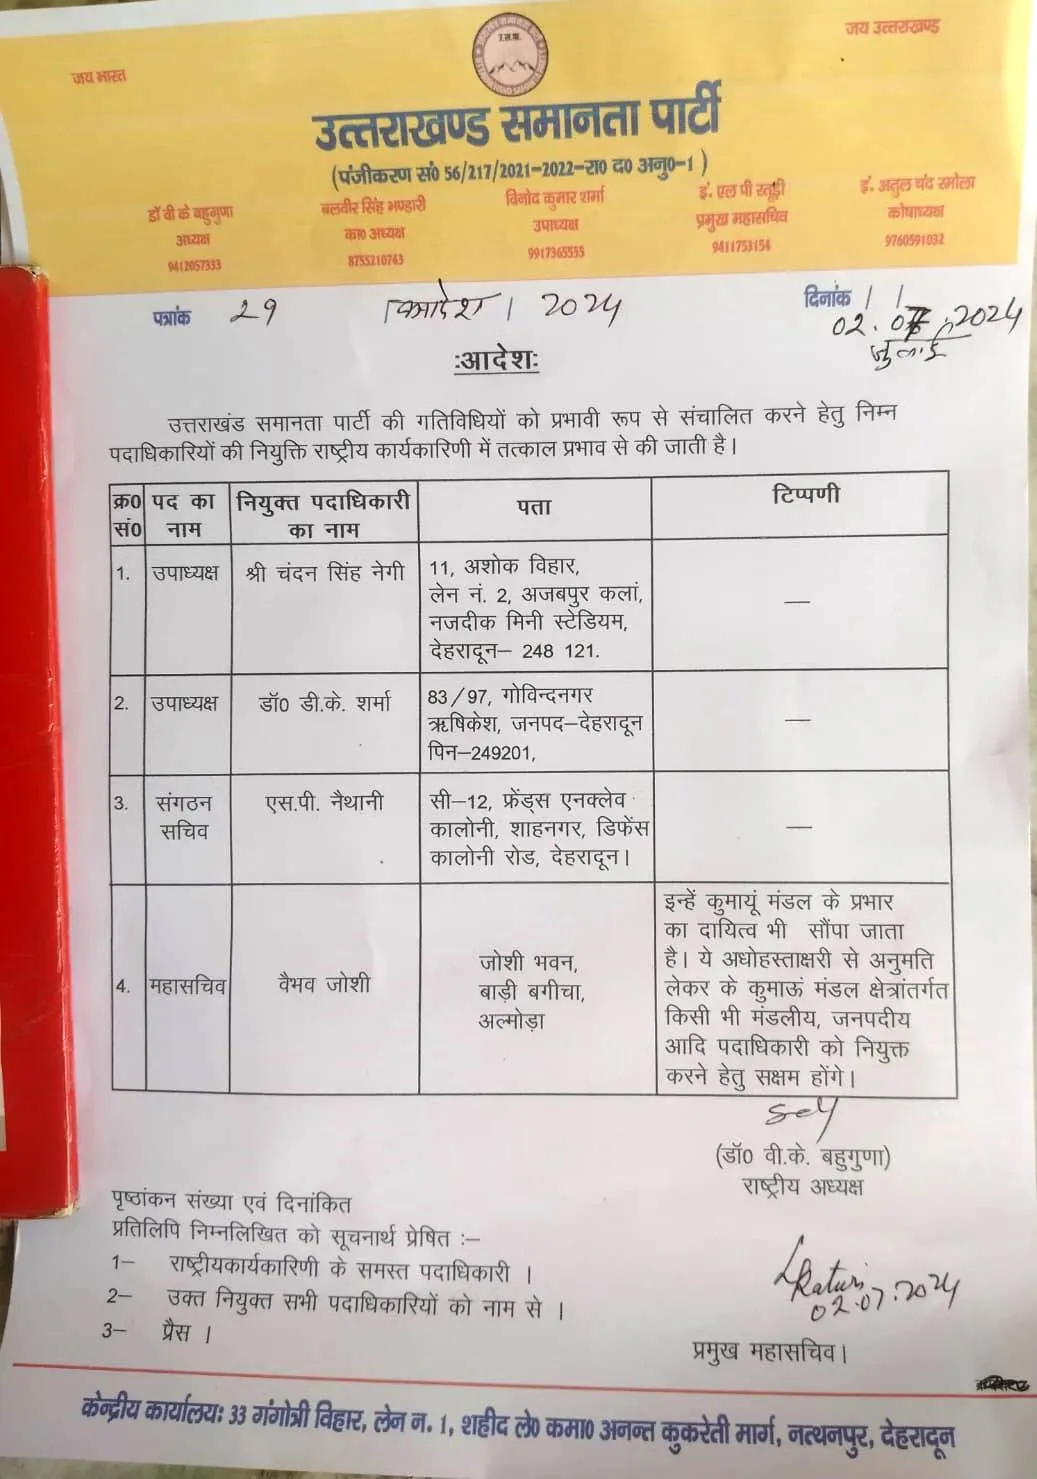 जय भारत
जय उत्तराखण्ड
उ.स.पा.
उत्तराखण्ड समानता पार्टी
(पंजीकरण सं0 56/217/2021-2022-रा0 द0 अनु0-1 )
डॉ वी के बहुगुणा
अध्यक्ष
9412057333
बलवीर सिंह भण्डारी
का0 अध्यक्ष
8755210743
विनोद कुमार शर्मा
उपाध्यक्ष
9917365555
इं. एल पी रतूड़ी
प्रमुख महासचिव
9411753154
इं. अतुल चंद रमोला
कोषाध्यक्ष
9760591032
पत्रांक 29 / 2024
दिनांक / /
02.07.2024
जुलाई
:आदेश:
उत्तराखंड समानता पार्टी की गतिविधियों को प्रभावी रूप से संचालित करने हेतु निम्न
पदाधिकारियों की नियुक्ति राष्ट्रीय कार्यकारिणी में तत्काल प्रभाव से की जाती है।
क्र0 सं0 पद का नाम नियुक्त पदाधिकारी का नाम पता टिप्पणी
1. उपाध्यक्ष श्री चंदन सिंह नेगी 11, अशोक विहार,
लेन नं. 2, अजबपुर कलां,
नजदीक मिनी स्टेडियम,
देहरादून– 248 121.
—
2. उपाध्यक्ष डॉ0 डी.के. शर्मा 83/97, गोविन्दनगर
ऋषिकेश, जनपद–देहरादून
पिन–249201,
—
3. संगठन सचिव एस.पी. नैथानी सी–12, फ्रेंड्स एनक्लेव
कालोनी, शाहनगर, डिफेंस
कालोनी रोड, देहरादून।
—
4. महासचिव वैभव जोशी जोशी भवन,
बाड़ी बगीचा,
अल्मोड़ा
इन्हें कुमायूं मंडल के प्रभार
का दायित्व भी सौंपा जाता
है। ये अधोहस्ताक्षरी से अनुमति
लेकर के कुमाऊं मंडल क्षेत्रांतर्गत
किसी भी मंडलीय, जनपदीय
आदि पदाधिकारी को नियुक्त
करने हेतु सक्षम होंगे।
(डॉ0 वी.के. बहुगुणा)
राष्ट्रीय अध्यक्ष
पृष्ठांकन संख्या एवं दिनांकित
प्रतिलिपि निम्नलिखित को सूचनार्थ प्रेषित :–
1– राष्ट्रीयकार्यकारिणी के समस्त पदाधिकारी ।
2– उक्त नियुक्त सभी पदाधिकारियों को नाम से ।
3– प्रैस ।
02.07.2024
प्रमुख महासचिव।
केन्द्रीय कार्यालय: 33 गंगोत्री विहार, लेन न. 1, शहीद ले0 कमा0 अनन्त कुकरेती मार्ग, नत्थनपुर, देहरादून